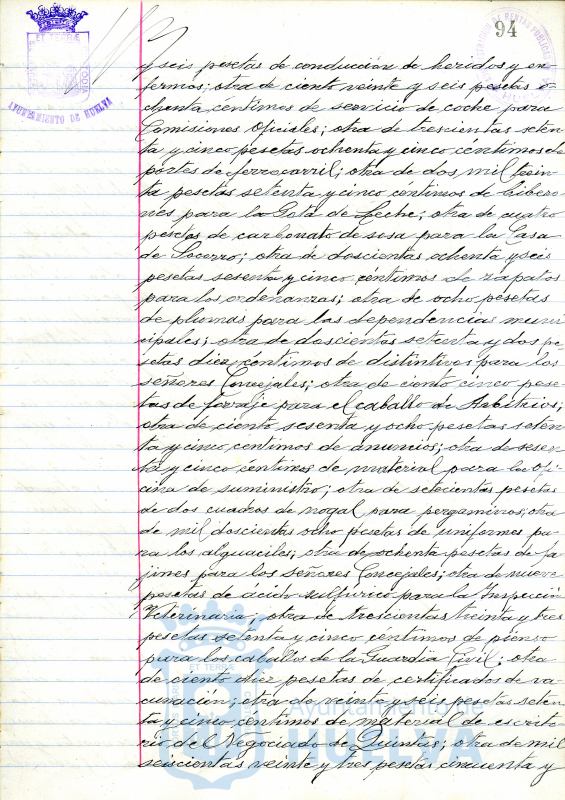 94
AYUNTAMIENTO DE HUELVA
y seis pesetas de conducción de heridos y en-
fermos; otra de ciento veinte y seis pesetas o-
chenta céntimos de servicio de coche para
Comisiones Oficiales; otra de trescientas seten-
ta y cinco pesetas ochenta y cinco céntimos de
portes de ferrocarril; otra de dos mil trein-
ta pesetas setenta y cinco céntimos de bibero-
nes para la Gota de Leche; otra de cuatro
pesetas de carbonato de sosa para la Casa
de Socorro; otra de doscientas ochenta y seis
pesetas sesenta y cinco céntimos de zapatos
para los ordenanzas; otra de ocho pesetas
de plumas para las dependencias muni-
cipales; otra de doscientas setenta y dos pe-
setas diez céntimos de distintivos para los
señores Concejales; otra de ciento cinco pese-
tas de forraje para el caballo de Arbitrios;
otra de ciento sesenta y ocho pesetas seten-
ta y cinco céntimos de anuncios; otra de sesen-
ta y cinco céntimos de material para la ofi-
cina de suministro; otra de setecientas pesetas
de dos cuadros de nogal para pergaminos; otra
de mil doscientas ocho pesetas de uniformes pa-
ra los alguaciles; otra de ochenta pesetas de fa-
jines para los señores Concejales; otra de nueve
pesetas de ácido sulfúrico para la Inspección
Veterinaria; otra de trescientas treinta y tres
pesetas setenta y cinco céntimos de pienso
para los caballos de la Guardia Civil; otra
de ciento diez pesetas de certificados de va-
cunación; otra de veinte y seis pesetas seten-
ta y cinco céntimos de material de escrito-
rio de Negociado de Quintas; otra de mil
seiscientas veinte y tres pesetas cincuenta y
Ayuntamiento de
HUELVA